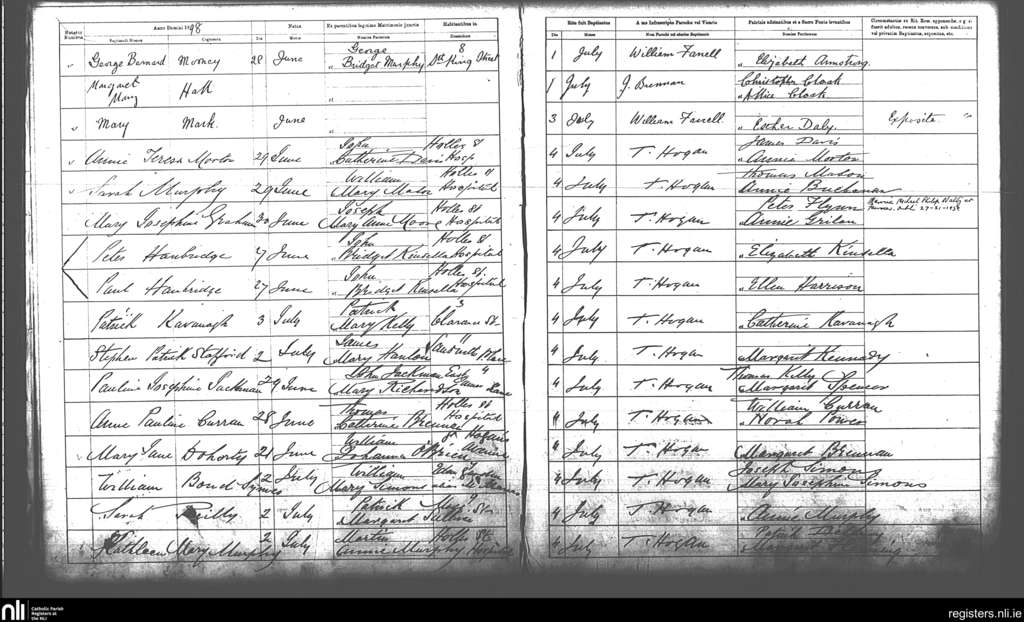 Anno Domini 1898
Natus
Ex parentibus legitimo Matrimonio junctis
Habitantibus in
Baptizandi Nomen Cognomen Die Mense Nomina Parentum Domicilium
George 8
George Bernard Mooney 28 June Bridget Murphy Sth King Street
Margaret
Mary Hall
Mary Mark. June
John Holles St
Annie Teresa Morton 29 June Catherine Davis Hosp
William Holles St
Sarah Murphy 29 June Mary Maton Hospital
Joseph Holles St
Mary Josephine Graham 30 June Mary Anne Moore Hospital
John Holles St
Peter Hanbridge 27 June Bridget Kinsella Hospital
John Holles St.
Paul Hanbridge 27 June Bridget Kinsella Hospital
Patrick 3
Patrick Kavanagh 3 July Mary Kelly Clarence St
James
Stephen Patrick Stafford 2 July Mary Hanlon Sandwith Place
John Jackman East 4
Pauline Josephine Jackman 29 June Mary Richardson Lane
Thomas Holles St
Anne Pauline Curran 28 June Catherine Brennan Hospital
William Hogan's
Mary Jane Doherty 21 June Johanna O'Brien Avenue
William
William Bond Symes 2 July Mary Simons
Patrick
Sarah Reilly 2 July Margaret Sullivan
Martin Holles St
Kathleen Mary Murphy 2 July Annie Murphy Hospital
Rite fuit Baptizatus
A me Infrascripto Parocho vel Vicario
Patrinis adstantibus et a Sacro Fonte levantibus
Die Mense Nom Parochi vel alterius Baptizantis Nomina Patrinorum
1 July William Farrell Elizabeth Armstrong.
Christopher Cloak
1 July J. Brennan Alice Cloak
3 July William Farrell Esther Daly. Exposita
James Davis
4 July T. Hogan Annie Morton
Thomas Maton
4 July T. Hogan Annie Buchanan
Peter Flynn
4 July T. Hogan Annie
4 July T. Hogan Elizabeth Kinsella
4 July T. Hogan Ellen Harrison
4 July T. Hogan Catherine Kavanagh
4 July T. Hogan Margaret Kennedy
Thomas Kelly
4 July T. Hogan Margaret Spencer
William Curran
4 July T. Hogan Norah Power
4 July T. Hogan Margaret Brennan
Joseph Simons
4 July T. Hogan Mary Josephine Simons
4 July T. Hogan Annie Murphy
Patrick
4 July T. Hogan Margaret
nli Catholic Parish
Registers at
the NLI
registers.nli.ie